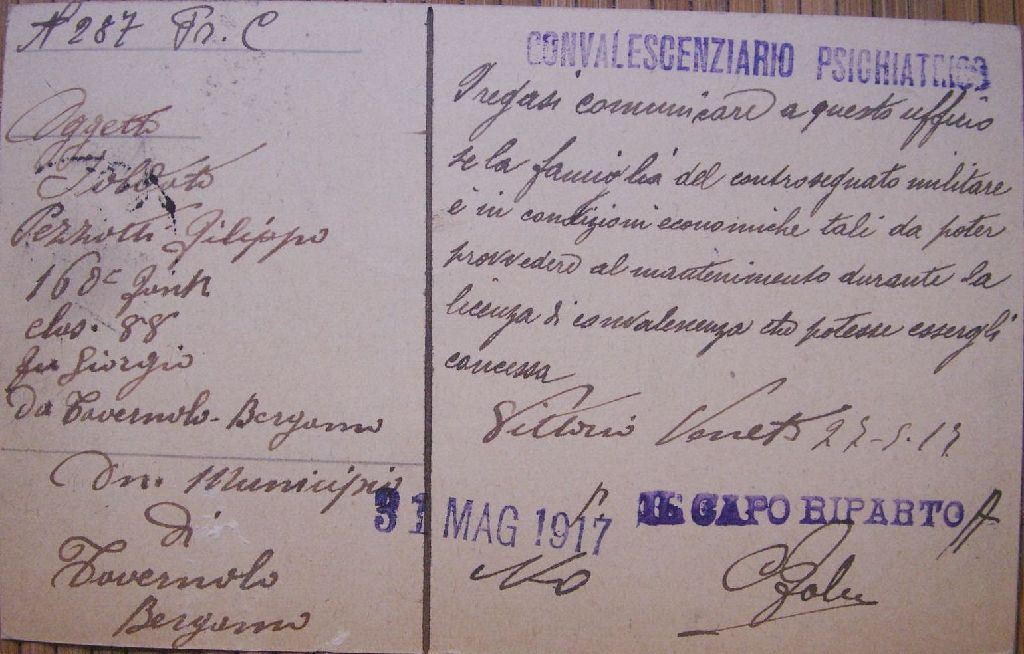 N 287 Pr. C
Oggetto
Soldato
Pezzotti Filippo
168° Fant
clas. 88
fu Giorgio
da Tavernola-Bergamo
On. Municipio
di
Tavernola
Bergamo
CONVALESCENZIARIO PSICHIATRICO
Pregasi comunicare a questo ufficio
se la famiglia del controsegnato militare
è in condizioni economiche tali da poter
provvedere al mantenimento durante la
licenza di convalescenza che potesse essergli
concessa
Vittorio Veneto 27-5-17
31 MAG 1917
IL CAPO RIPARTO
No